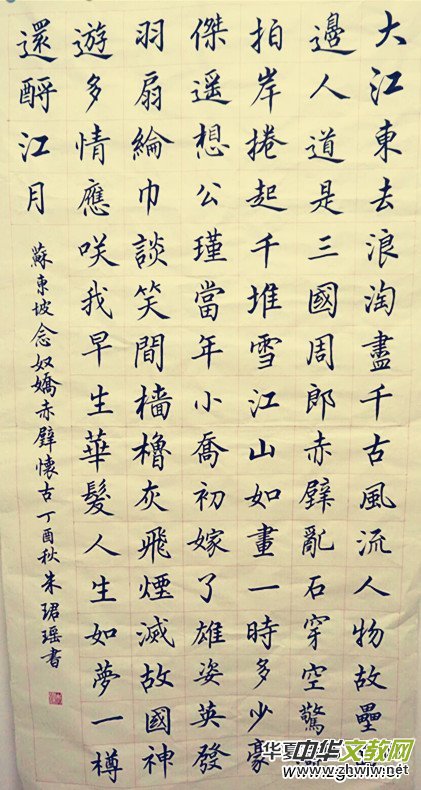 大江東去浪淘盡千古風流人物故壘
邊人道是三國周郎赤壁亂石穿空驚
拍岸捲起千堆雪江山如畫一時多少豪
傑遥想公瑾當年小喬初嫁了雄姿英發
羽扇綸巾談笑間檣櫓灰飛煙滅故國神
遊多情應咲我早生華髮人生如夢一樽
還酹江月
蘇東坡念奴嬌赤壁懷古丁酉秋朱珺瑶書
华夏
中华文教网
www.zhwjw.net